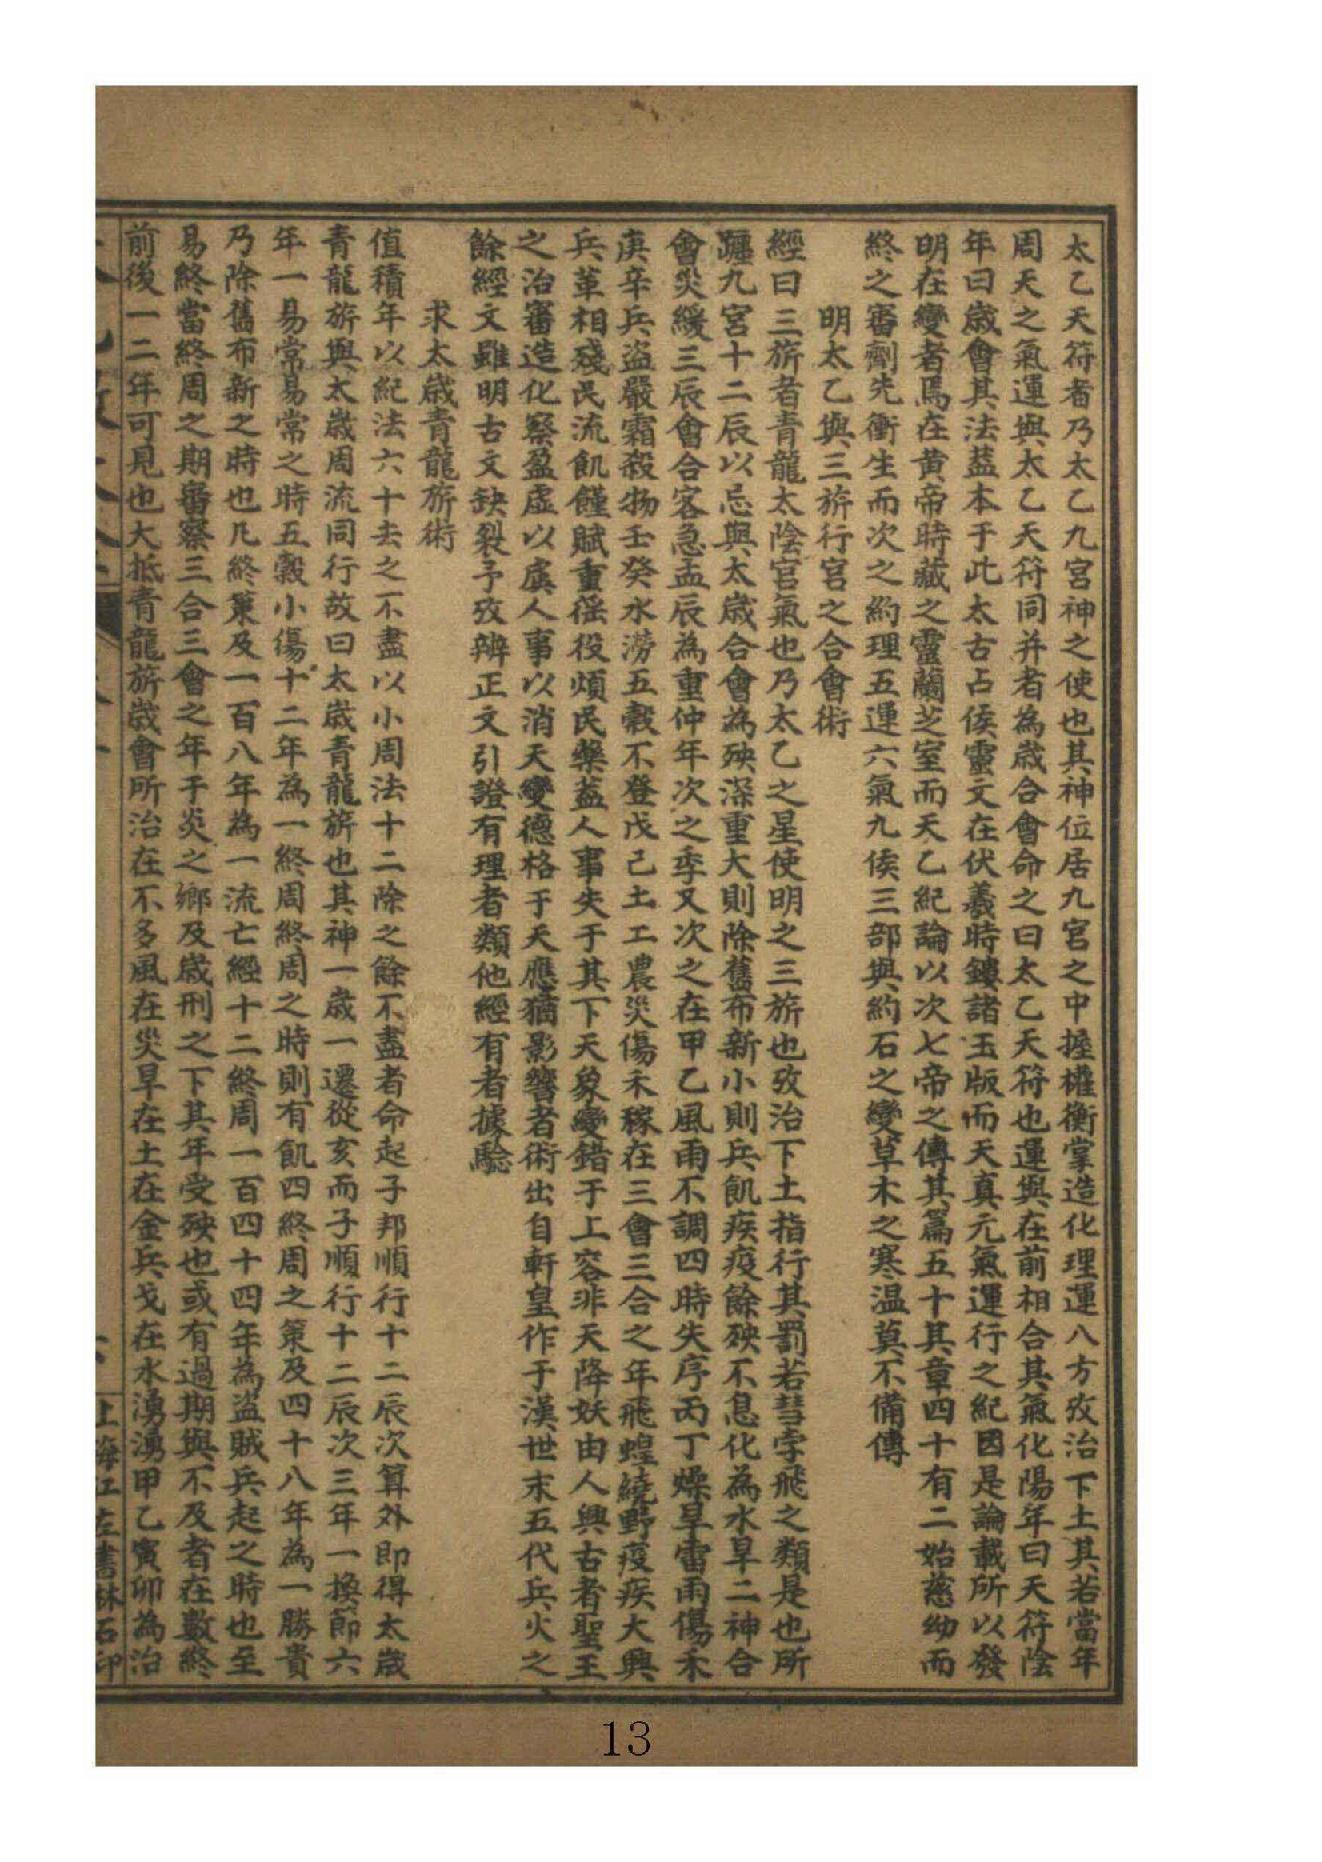 太乙天符者乃太乙九宮神之使也其神位居九宮之中握權衡掌造化理運八方攷治下土其若當年
周天之氣運與太乙天符同并者為歲合會命之曰太乙天符也運與在前相合其氣化陽年曰天符陰
年曰歲會其法葢本于此太古占侯靈文在伏羲時鏤諸玉版而天真元氣運行之紀因是論載所以發
明在變者焉在黄帝時藏之靈蘭芝室而天乙紀論以次七帝之傳其篇五十其章四十有二始慈幼而
終之審劑先衝生而次之約理五運六氣九侯三部與約石之變草木之寒温莫不備傳
明太乙與三旂行宮之合會術
經曰三旂者青龍太陰官氣也乃太乙之星使明之三旂也攷治下土指行其罰若彗孛飛之類是也所
躔九宮十二辰以忌與太歲合會為殃深重大則除舊布新小則兵飢疾疫餘殃不息化為水旱二神合
會災緩三辰會合客急孟辰為重仲年次之季又次之在甲乙風雨不調四時失序丙丁燥旱雷雨傷禾
庚辛兵盜嚴霜殺物壬癸水澇五穀不登戊己土工農災傷禾稼在三會三合之年飛蝗繞野疫疾大興
兵革相殘民流飢饉賦重徭役煩民槳葢人事失于其下天象變錯于上容非天降妖由人興古者聖王
之治審造化察盈虚以虞人事以消天變德格于天應猶影響者術出自軒皇作于漢世末五代兵火之
餘經文雖明古文缺裂予攷辨正文引證有理者類他經有者據驗
求太歲青龍旂術
值積年以紀法六十去之不盡以小周法十二除之餘不盡者命起子邦順行十二辰次算外即得太歲
青龍旂與太歲周流同行故曰太歲青龍旂也其神一歲一遷從亥而子順行十二辰次三年一換節六
年一易常易常之時五穀小傷十二年為一終周終周之時則有飢四終周之策及四十八年為一勝貴
乃除舊布新之時也凡終策及一百八年為一流亡經十二終周一百四十四年為盜賊兵起之時也至
易終當終周之期審察三合三會之年于炎之鄉及歲刑之下其年受殃也或有過期與不及者在數終
前後一二年可見也大抵青龍旂歲會所治在不多風在災旱在土在金兵戈在水湧湧甲乙寅卯為治
上海江左書林石印
13